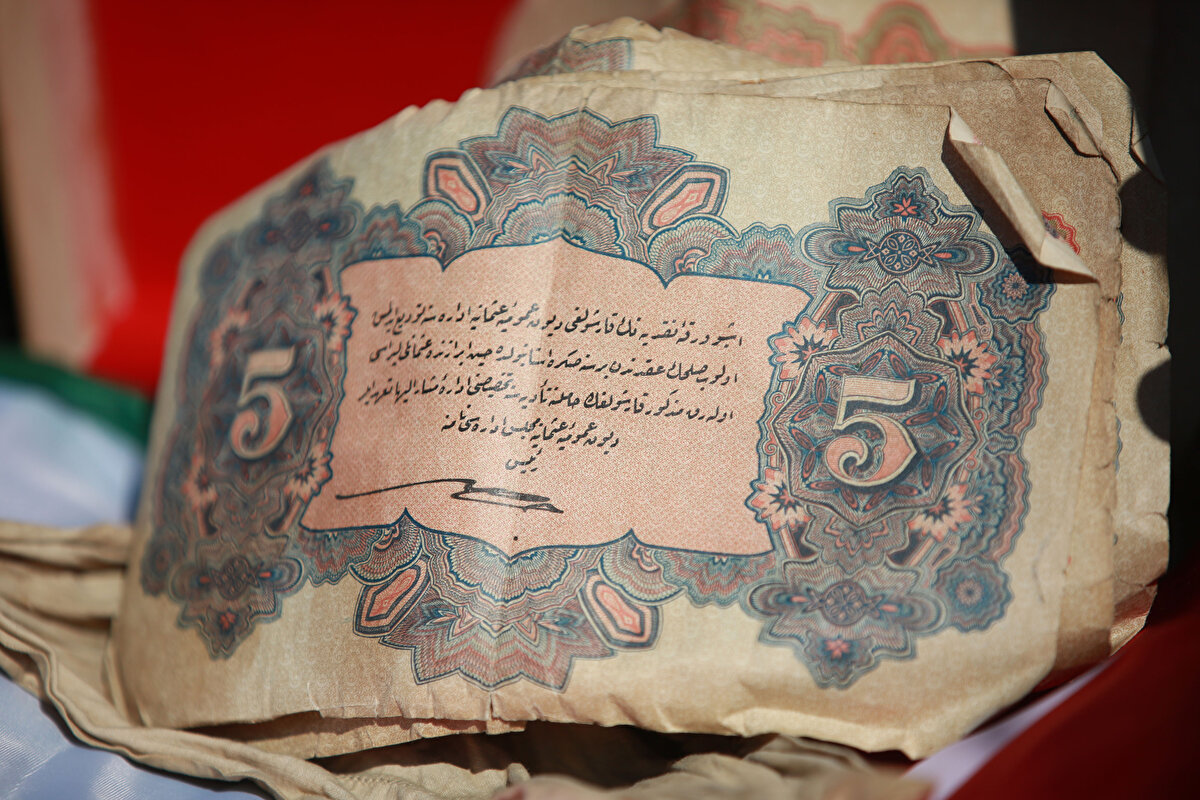 اشبو ورقهٔ نقدیه نك قارشولغی دیون عمومیهٔ عثمانیه اداره سنه تودیع ایدلمش
اولوب صلحك عقدندن بر سنه صكره استانبولده حین ابرازنده عثمانلی لیراسی
اوله رق مذكور قارشولغك حاملنه تأدیه یه تخصیصی ادارهٔ مشار الیها تعهد ایدر
دیون عمومیهٔ عثمانیه مجلس اداره سی نامنه
رئیس
5
5